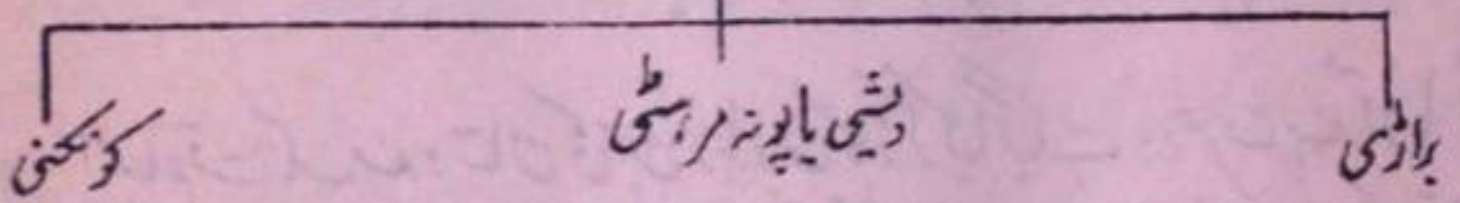 براڑی
دیشی یا پونہ مرہٹی
کونکنی